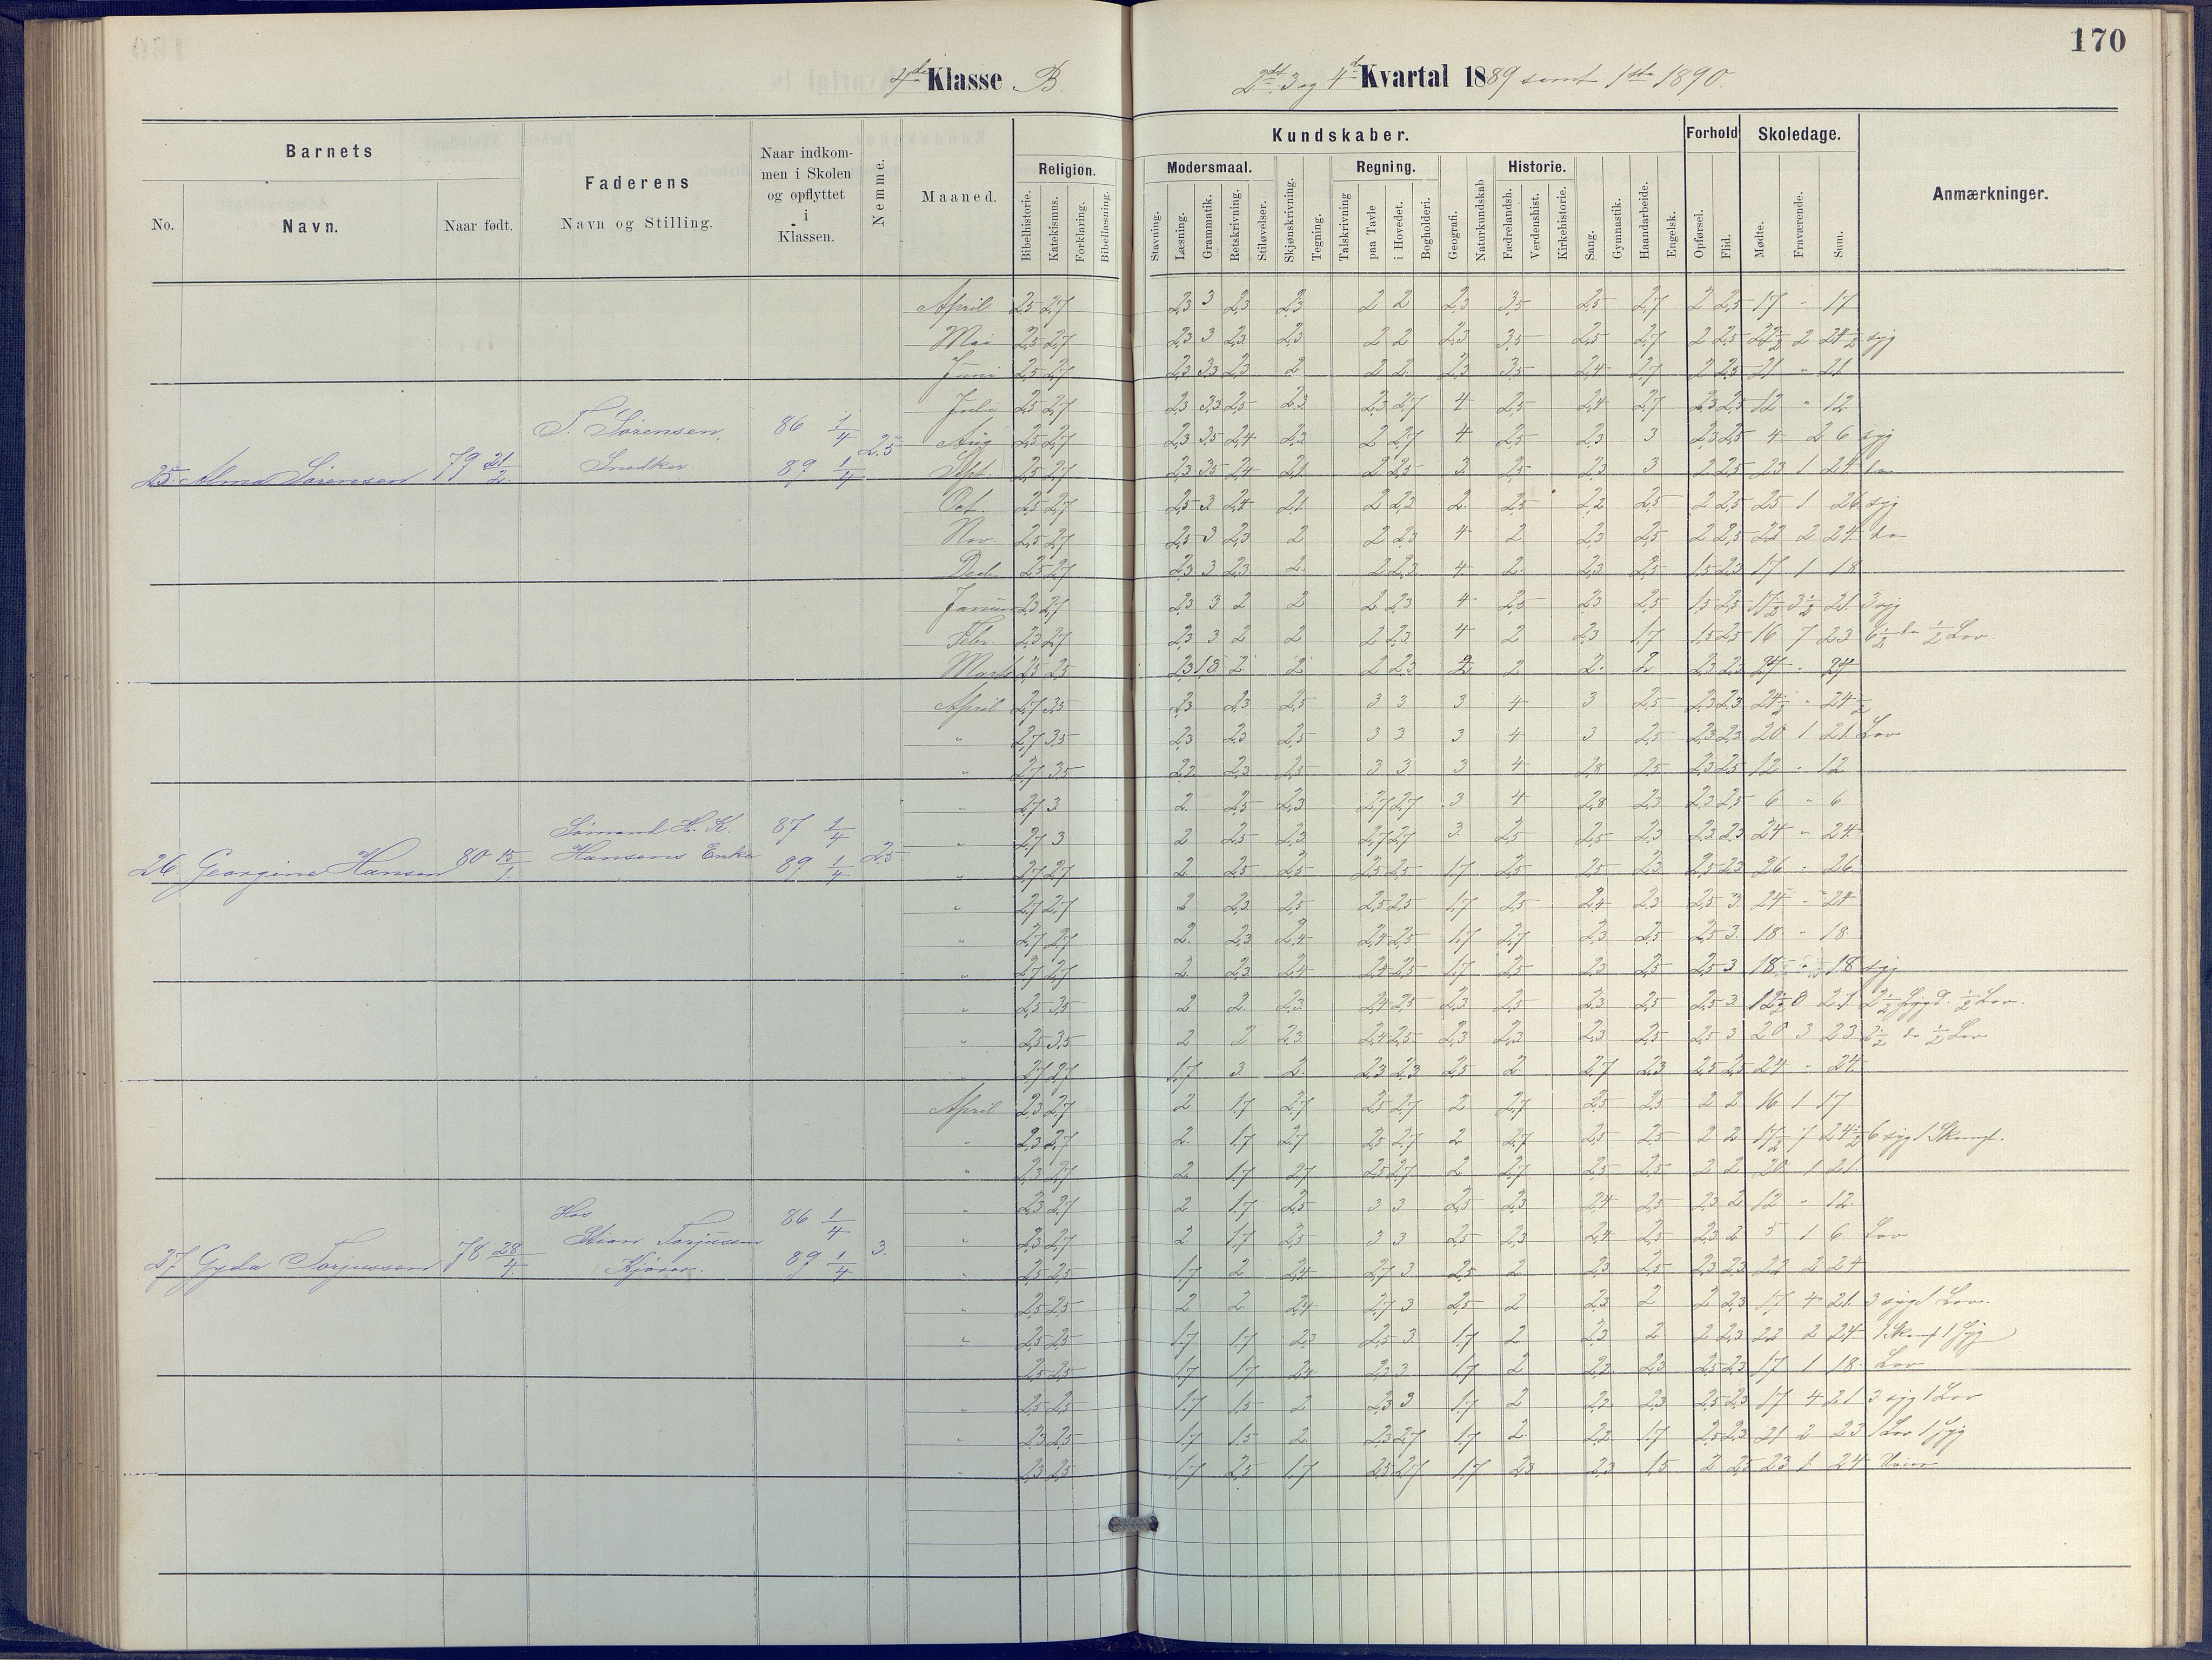 170
4de Klasse B.
2det 3 og 4de Kvartal 1889 samt 1ste 1890.
Barnets
Faderens
Naar indkom-
men i Skolen
og opflyttet
i
Klassen.
Nemme.
Maaned.
Kundskaber.
Forhold
Skoledage.
Anmærkninger.
No.
Navn.
Naar født.
Navn og Stilling.
Religion.
Modersmaal.
Regning.
Historie.
Bibelhistorie.
Katekismus.
Forklaring.
Bibellæsning.
Stavning.
Læsning.
Grammatik.
Retskrivning.
Stiløvelser.
Skjønskrivning.
Tegning.
Talskrivning
paa Tavle
i Hovedet.
Bogholderi.
Geografi.
Naturkundskab
Fædrelandsh.
Verdenshist.
Kirkehistorie.
Sang.
Gymnastik.
Haandarbeide.
Engelsk.
Opførsel.
Flid.
Mødte.
Fraværende.
Sum.
April 2,5 2,7 2,3 3 2,3 2,3 2 2 2,3 3,5 2,5 2,7 2 2,5 17 - 17
Mai 2,5 2,7 2,3 3 2,3 2,3 2 2 2,3 3,5 2,5 2,7 2 2,5 22½ 2 24½ syg
Juni 2,5 2,7 2,3 3,3 2,3 2 2 2 2,3 3,5 2,4 2,7 2 2,3 21 " 21
Juli 2,5 2,7 2,3 3,3 2,5 2,3 2,3 2,7 4 2,5 2,4 2,7 2,3 2,5 12 " 12
T. Sørensen, 86 1/4
Aug 2,5 2,7 2,3 3,5 2,4 2,2 2 2,7 4 2,5 2,3 3 2,3 2,5 4 2 6 syg
25. Alma Sørensen 79 21/2 Snedker 89 1/4 2.5
Sept. 2,5 2,7 2,3 3,5 2,4 2,1 2 2,5 3 2,5 2,3 3 2 2,5 23 1 24 do
Oct. 2,5 2,7 2,5 3 2,4 2,1 2 2,3 2 2,5 2,2 2,5 2 2,5 25 1 26 syg
Nov. 2,5 2,7 2,5 3 2,3 2 2 2,3 4 2 2,3 2,5 2 2,5 22 2 24 do
Decb. 2,5 2,7 2,3 3 2,3 2 2 2,3 4 2 2,3 2,5 1,5 2,3 17 1 18
Januar 2,3 2,7 2,3 3 2 2 2 2,3 4 2,5 2,3 2,5 1,5 2,5 17½ 3½ 21 3 syg
Febr. 2,3 2,7 2,3 3 2 2 2 2,3 4 2 2,3 1,7 1,5 2,5 16 7 23 6½ do ½ Lov.
Marts 2,5 2,5 2,3 1,8 2 2 2 2,3 2 2 2 2 2,3 2,3 24 - 24
April 2,7 3,5 2,3 2,3 2,5 3 3 3 4 3 2,5 2,3 2,3 24½ " 24½
" 2,7 3,5 2,3 2,3 2,5 3 3 3 4 3 2,5 2,3 2,3 20 1 21 Lov
" 2,7 3,5 2,2 2,3 2,5 3 3 3 4 2,8 2,5 2,3 2,5 12 - 12
" 2,7 3 2 2,5 2,3 2,7 2,7 3 4 2,8 2,3 2,3 2,5 6 " 6
Sømand H. K. 87 1/4
" 2,7 3 2 2,5 2,3 2,7 2,7 3 2,5 2,5 2,3 2,3 2,3 24 " 24
26 Georgine Hansen 80 15/1. Hansens Enke 89 1/4 2.5
" 2,7 2,7 2 2,5 2,5 2,5 2,5 1,7 2,5 2,5 2,3 2,5 2,3 26 " 26
" 2,7 2,7 2 2,3 2,5 2,5 2,5 1,7 2,5 2,4 2,3 2,5 3 24 " 24
" 2,7 2,7 2 2,3 2,4 2,4 2,5 1,7 2,7 2,3 2,5 2,5 3 18 " 18
" 2,7 2,7 2 2,3 2,4 2,4 2,5 1,7 2,5 2,3 2,5 2,5 3 18 " 18 syg
" 2,5 3,5 2 2 2,3 2,4 2,5 2,3 2,5 2,3 2,5 2,5 3 12½ 8 21 ½ Lov.
" 2,5 3,5 2 2 2,3 2,4 2,5 2,3 2,3 2,3 2,5 2,5 3 20 3 23 2½ do ½ Lov
" 2,7 2,7 1,7 3 2 2,3 2,3 2,5 2 2,7 2,3 2,5 2,5 24 " 24
April 2,3 2,7 2 1,7 2,7 2,5 2,7 2 2,7 2,5 2,5 2 2 16 1 17
" 2,3 2,7 2 1,7 2,7 2,5 2,7 2 2,7 2,5 2,5 2 2 17½ 7 24½ 6 syg 1 Skamf.
" 2,3 2,7 2 1,7 2,7 2,5 2,7 2 2,7 2,5 2,5 2 2 20 1 21
" 2,3 2,7 2 1,7 2,5 3 3 2,5 2,3 2,4 2,5 2,3 2 12 " 12
Hos 86 1/4
Torjussen
" 2,3 2,7 2 1,7 2,3 3 3 2,5 2,3 2,4 2,5 2,3 2 5 1 6 Lov
27 Gyda Torjussen 78 28/4 Kjøior. 89 1/4 3.
" 2,5 2,5 1,7 2 2,4 2,7 3 2,5 2 2,3 2,5 2,3 2,3 22 2 24
" 2,5 2,5 2 2 2,4 2,7 3 2,5 2 2,3 2 2 2,3 17 4 21 3 syg 1 Lov.
" 2,5 2,5 1,7 1,7 2,3 2,5 3 1,7 2 2,3 2 2 2,3 22 2 24 1 Skamf 1 syg
2,5 2,5 1,7 1,7 2,4 2,3 3 1,7 2 2,2 2,3 2,5 2,3 17 1 18 Lov
" 2,5 2,5 1,7 1,5 2 2,3 3 1,7 2 2,2 2,3 2,5 2,3 17 4 21 3 syg 1 Lov
" 2,3 2,5 1,7 1,5 2 2,3 2,7 1,7 2 2,2 1,7 2,5 2,3 21 2 23 1 Lov 1 syg
" 2,3 2,5 1,7 2,5 1,7 2,5 2,7 1,7 2,3 2,3 1,5 2 2,5 23 1 24